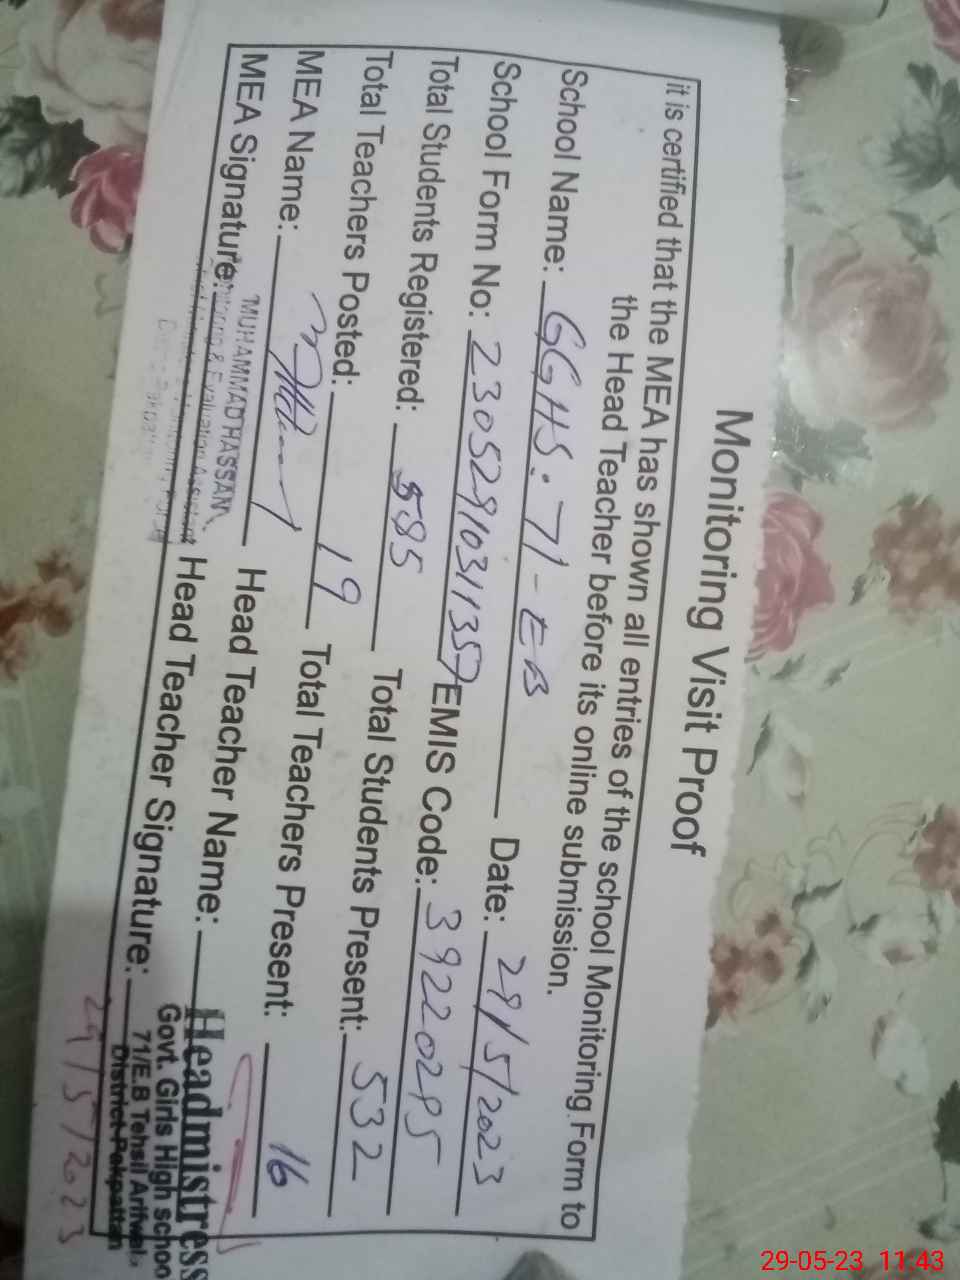 Monitoring Visit Proof
it is certified that the MEA has shown all entries of the school Monitoring Form to
the Head Teacher before its online submission.
School Name: GGHS. 71-EB Date: 29/5/2023
School Form No: 23052910311357 EMIS Code: 39220295
Total Students Registered: 585 Total Students Present: 532
Total Teachers Posted: 19 Total Teachers Present: 16
MEA Name: Head Teacher Name:
MEA Signature: Head Teacher Signature:
MUHAMMAD HASSAN
Monitoring & Evaluation Assistant
Headmistress
Govt. Girls High schoo
71/E.B Tehsil Arifwala
District Pakpattan
29/5/2023
29-05-23 11:43